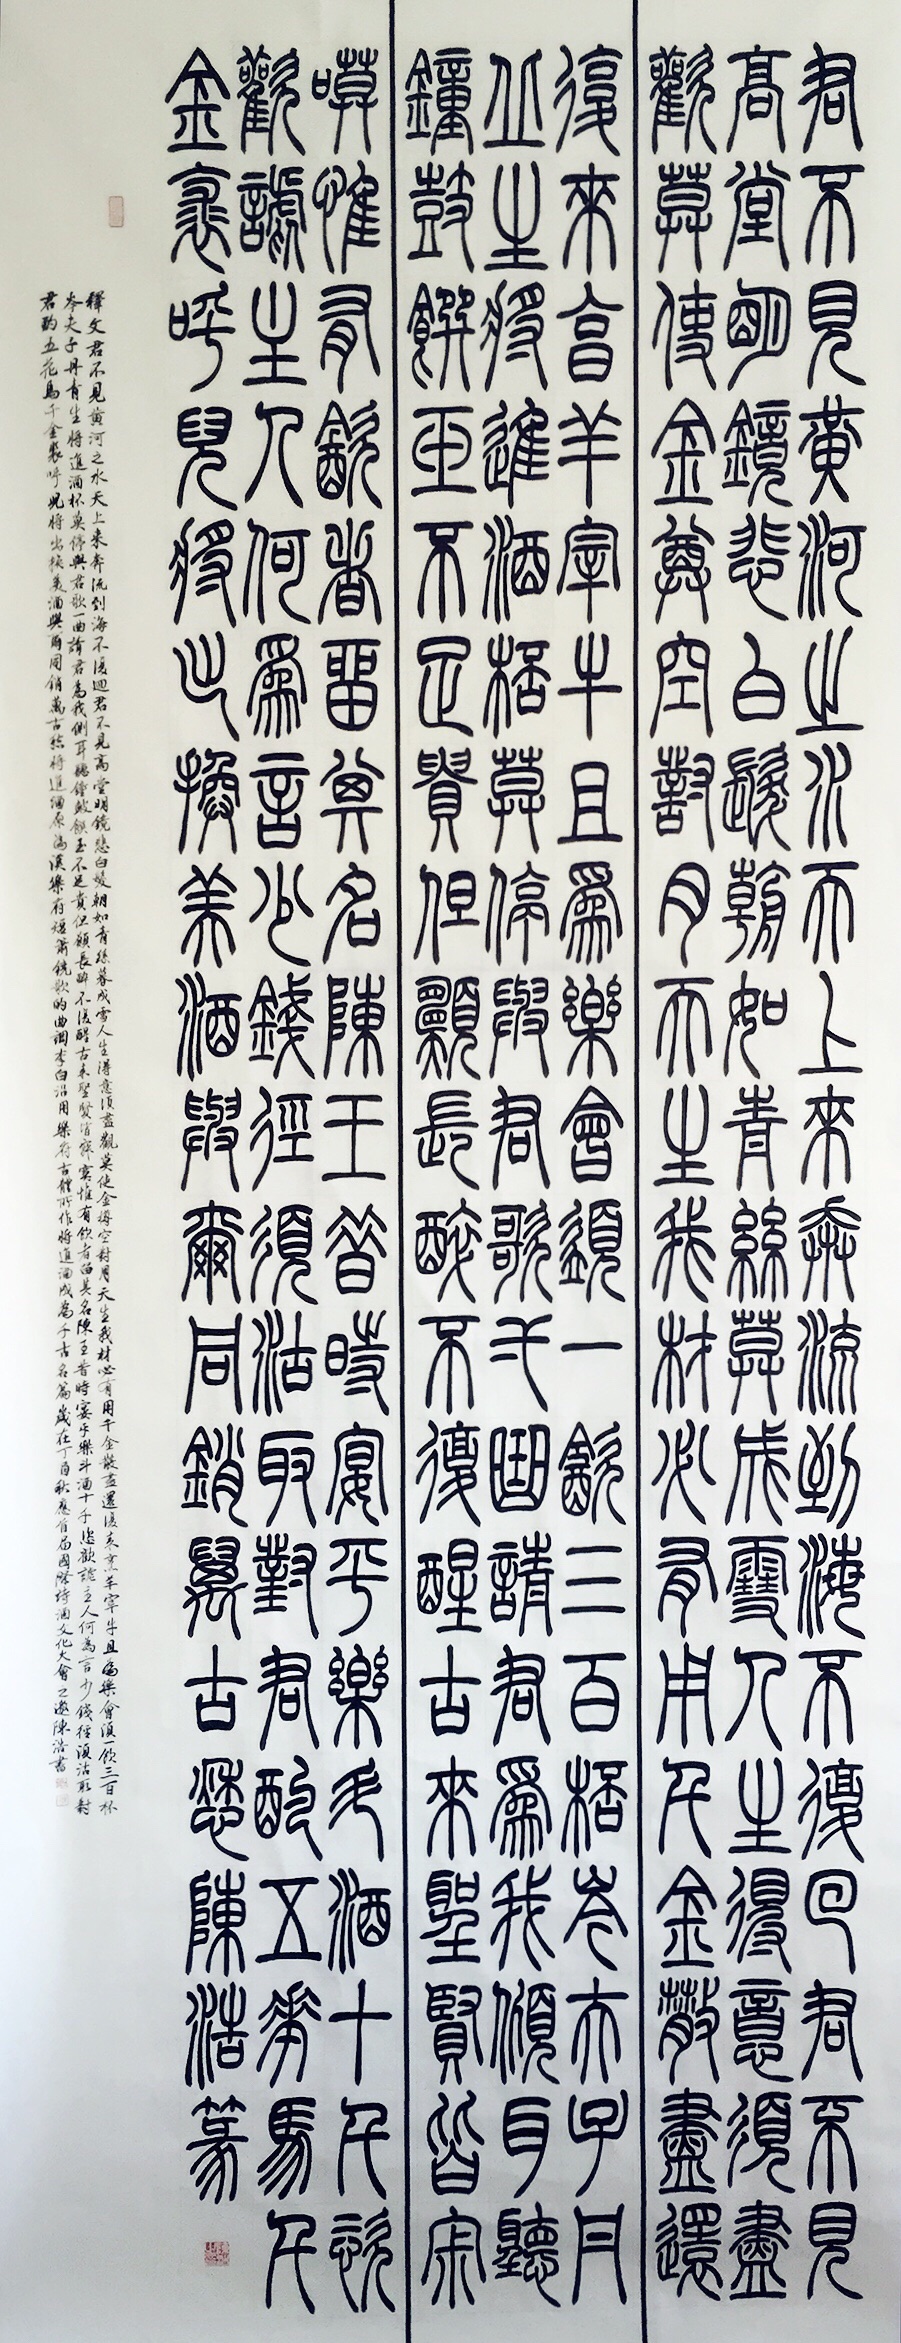 君不見黃河之水天上來奔流到海不復回君不見
高堂明鏡悲白髮朝如青絲莫成雪人生得意須盡
歡莫使金尊空對月天生我材必有用千金散盡還
復來亯羊宰牛且爲樂會須一飲三百桮岑夫子丹
丘生將進酒桮莫停與君歌弌曲請君爲我傾耳聽
鐘鼓饌玉不足貴但願長醉不復醒古來聖賢皆寂
嗼惟有飲者留其名陳王昔時宴平樂斗酒十千恣
歡謔主人何爲言少錢徑須沽取對君酌五花馬千
金裘呼兒將出換美酒與爾同銷萬古愁陳浩篆
釋文君不見黃河之水天上來奔流到海不復迴君不見高堂明鏡悲白髮朝如青絲暮成雪人生得意須盡觀莫使金樽空對月天生我材必有用千金散盡還復來烹羊宰牛且為樂會須一飲三百杯
岑夫子丹青生將進酒杯莫停與君歌一曲請君為我側耳聽鐘鼓饌玉不足貴但願長醉不復醒古來聖賢皆寂寞惟有飲者留其名陳王昔時宴平樂斗酒十千恣歡謔主人何為言少錢徑須沽取對
君酌五花馬千金裘呼兒將出換美酒與爾同銷萬古愁將進酒原為漢樂府短簫鐃歌的曲調李白沿用樂府古體所作將進酒成為千古名篇歲在丁酉秋應首屆國際詩酒文化大會之邀陳浩書